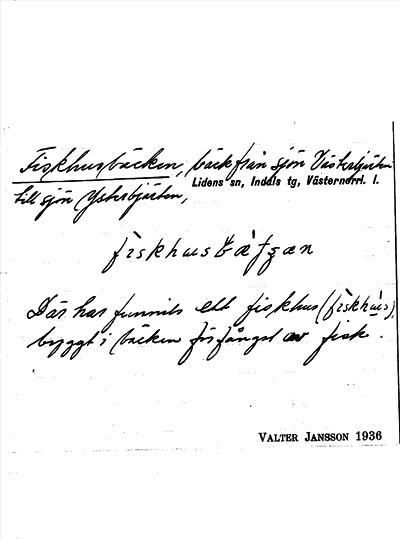 Fiskhusbäcken, bäck från sjön Västerbjärten
Lidens sn, Indals tg, Västernorrl. l.
till sjön Ysterbjärten,
Där har funnits ett fiskhus (fìskhùs),
byggt i bäcken för fångst av fisk.
VALTER JANSSON 1936